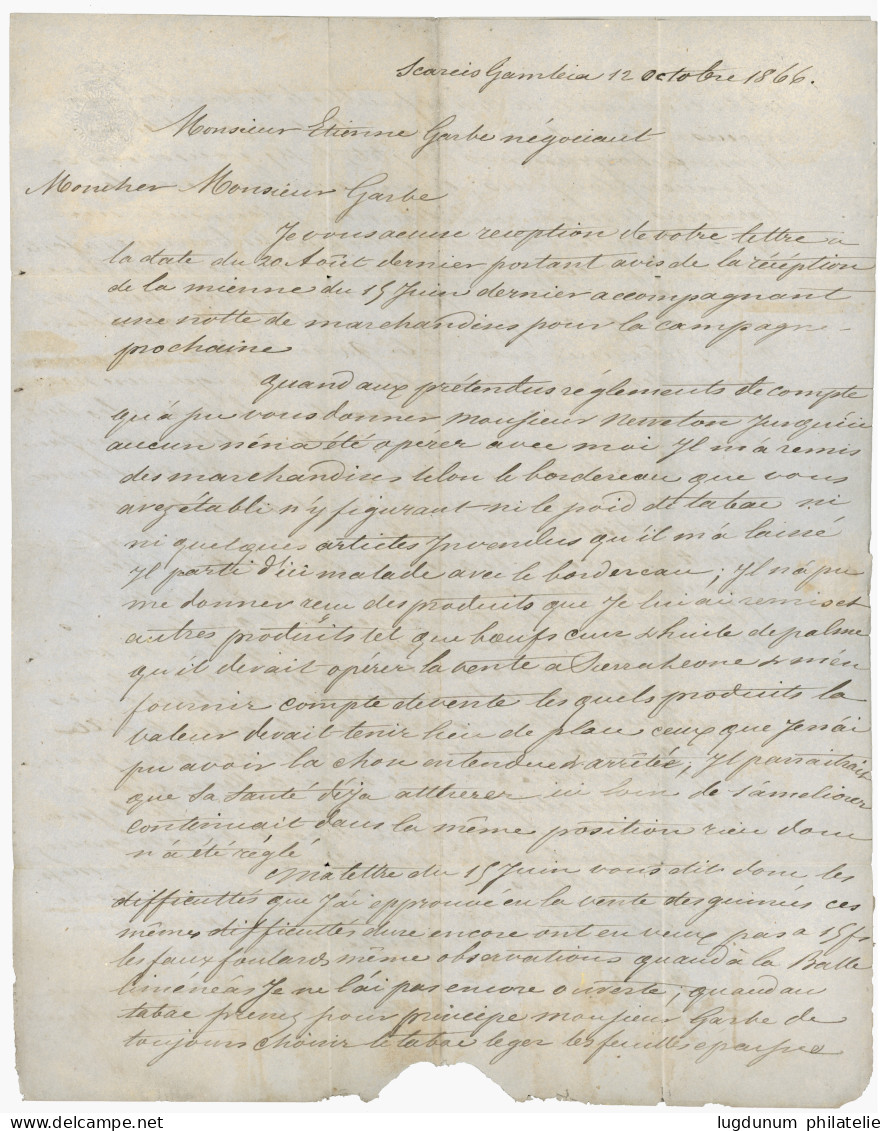 Scarcis Gambia 12 octobre 1866.
Monsieur Etienne Garbe négociant
Moncher Monsieur Garbe
Je vous acuse reception de votre lettre à
la date du 20 Août dernier portant avis de la réception
de la mienne du 15 Juin dernier accompagnant
une notte de marchandises pour la campagne
prochaine
Quand aux prétendus réglements de compte
qu'à pu vous donner Monsieur Newton Jusqu'ici
aucun n'en a été operer avec moi Il m'a remis
des marchandises selon le bordereau que vous
avez établi n'y figurant ni le poid de tabac ni
ni quelques articles Invendus qu'il m'a laissé
Il parti d'ici malade avec le bordereau; Il n'a pu
me donner reçu des produits que Je lui ai remis et
autres produits tel que bœufs cuir & huile de palme
qu'il devait opérer la vente a Sierra Leone & m'en
fournir compte de vente les quels produits la
valeur devait tenir lieu de ceux que Je n'ai
pu avoir la chose entendue & arrêtée; Il parraitrait
que sa santé déja altterer ici loin de s'améliorer
continuait dans la même position rien donc
n'a été réglé
Ma lettre du 15 Juin vous dit donc les
difficultés que J'ai épprouvé en la vente des guinées ces
mêmes difficultés dure encore ont en veux pas a 15 fr
les faux foulards même observations quand à la Balle
Je ne l'ai pas encore ouverte; quand au
tabac prenez pour principe monsieur Garbe de
toujours choisir le tabac leger les feuilles
lugdunum philatelie